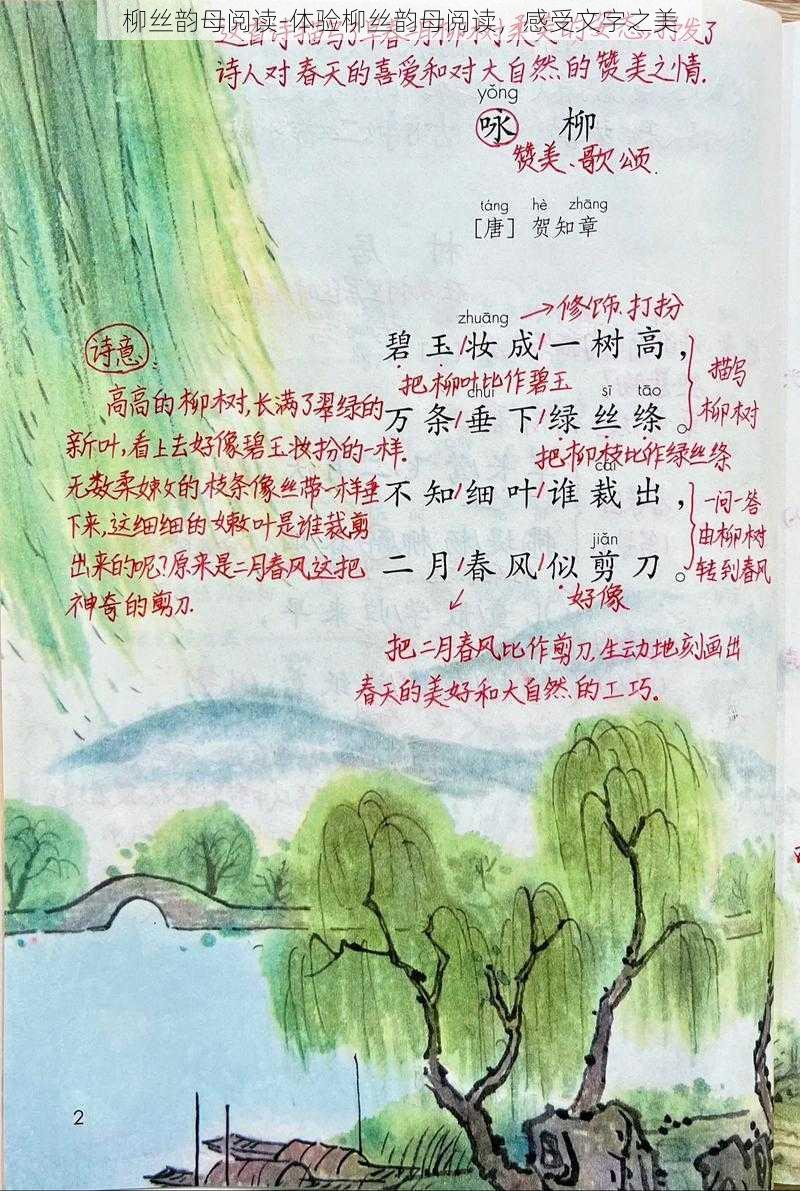 柳丝韵母阅读-体验柳丝韵母阅读，感受文字之美
诗人对春天的喜爱和对大自然的赞美之情.
yǒng
咏 柳
赞美、歌颂.
táng hè zhāng
[唐] 贺知章
zhuāng →修饰.打扮
诗意:
碧玉/妆成/一树高，
描写
柳树
把柳叶比作碧玉
chuí sī tāo
万条/垂下/绿丝绦。
把柳枝比作绿丝绦
cái
不知/细叶/谁裁出，
一问一答
由柳树
转到春风
jiǎn
二月/春风/似剪刀。
好像
高高的柳树,长满了翠绿的
新叶,看上去好像碧玉妆扮的一样.
无数柔嫩的枝条像丝带一样垂
下来,这细细的嫩叶是谁裁剪
出来的呢?原来是二月春风这把
神奇的剪刀.
把二月春风比作剪刀.生动地刻画出
春天的美好和大自然的工巧。
2